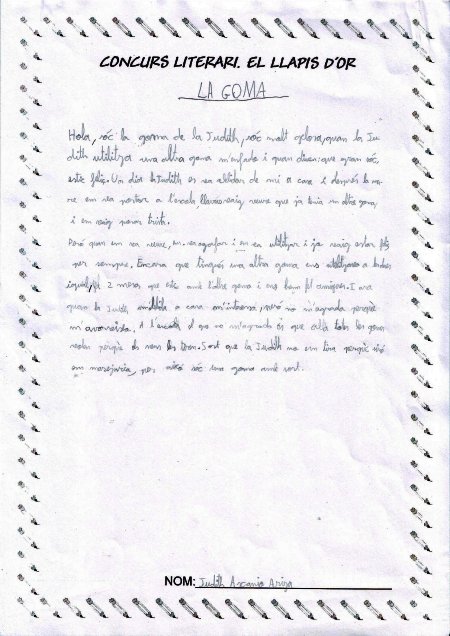 CONCURS LITERARI. EL LLAPIS D'OR
LA GOMA
Hola, sóc la goma de la Judith, sóc molt gelosa, quan la Ju
dith utilitza una altra goma m'enfado i quan diuen: que gran sóc,
estic feliç. Un dia la Judith es va oblidar de mi a casa i després la ma
re em va portar a l'escola, llavors vaig veure que ja tenia un altre goma,
i em vaig posar trista.
Però quan em va veure, em va agafar i em va utilitzar i ja vaig estar feliç
per sempre. Encara que tingués una altra goma ens utilitzava a totes
igual, 2 mesos que estic amb l'altre goma i ens hem fet amigues. I ara
quan la Judith a casa però no m'agrada perquè
m'avorreixo. A l'escola el que no m'agrada és que allà tots les gomes
volen perquè els nens les tiren. Sort que la Judith no em tira perquè sinó
em marejaria, per això sóc una goma amb sort.
NOM: Judith Ascanio Ariza